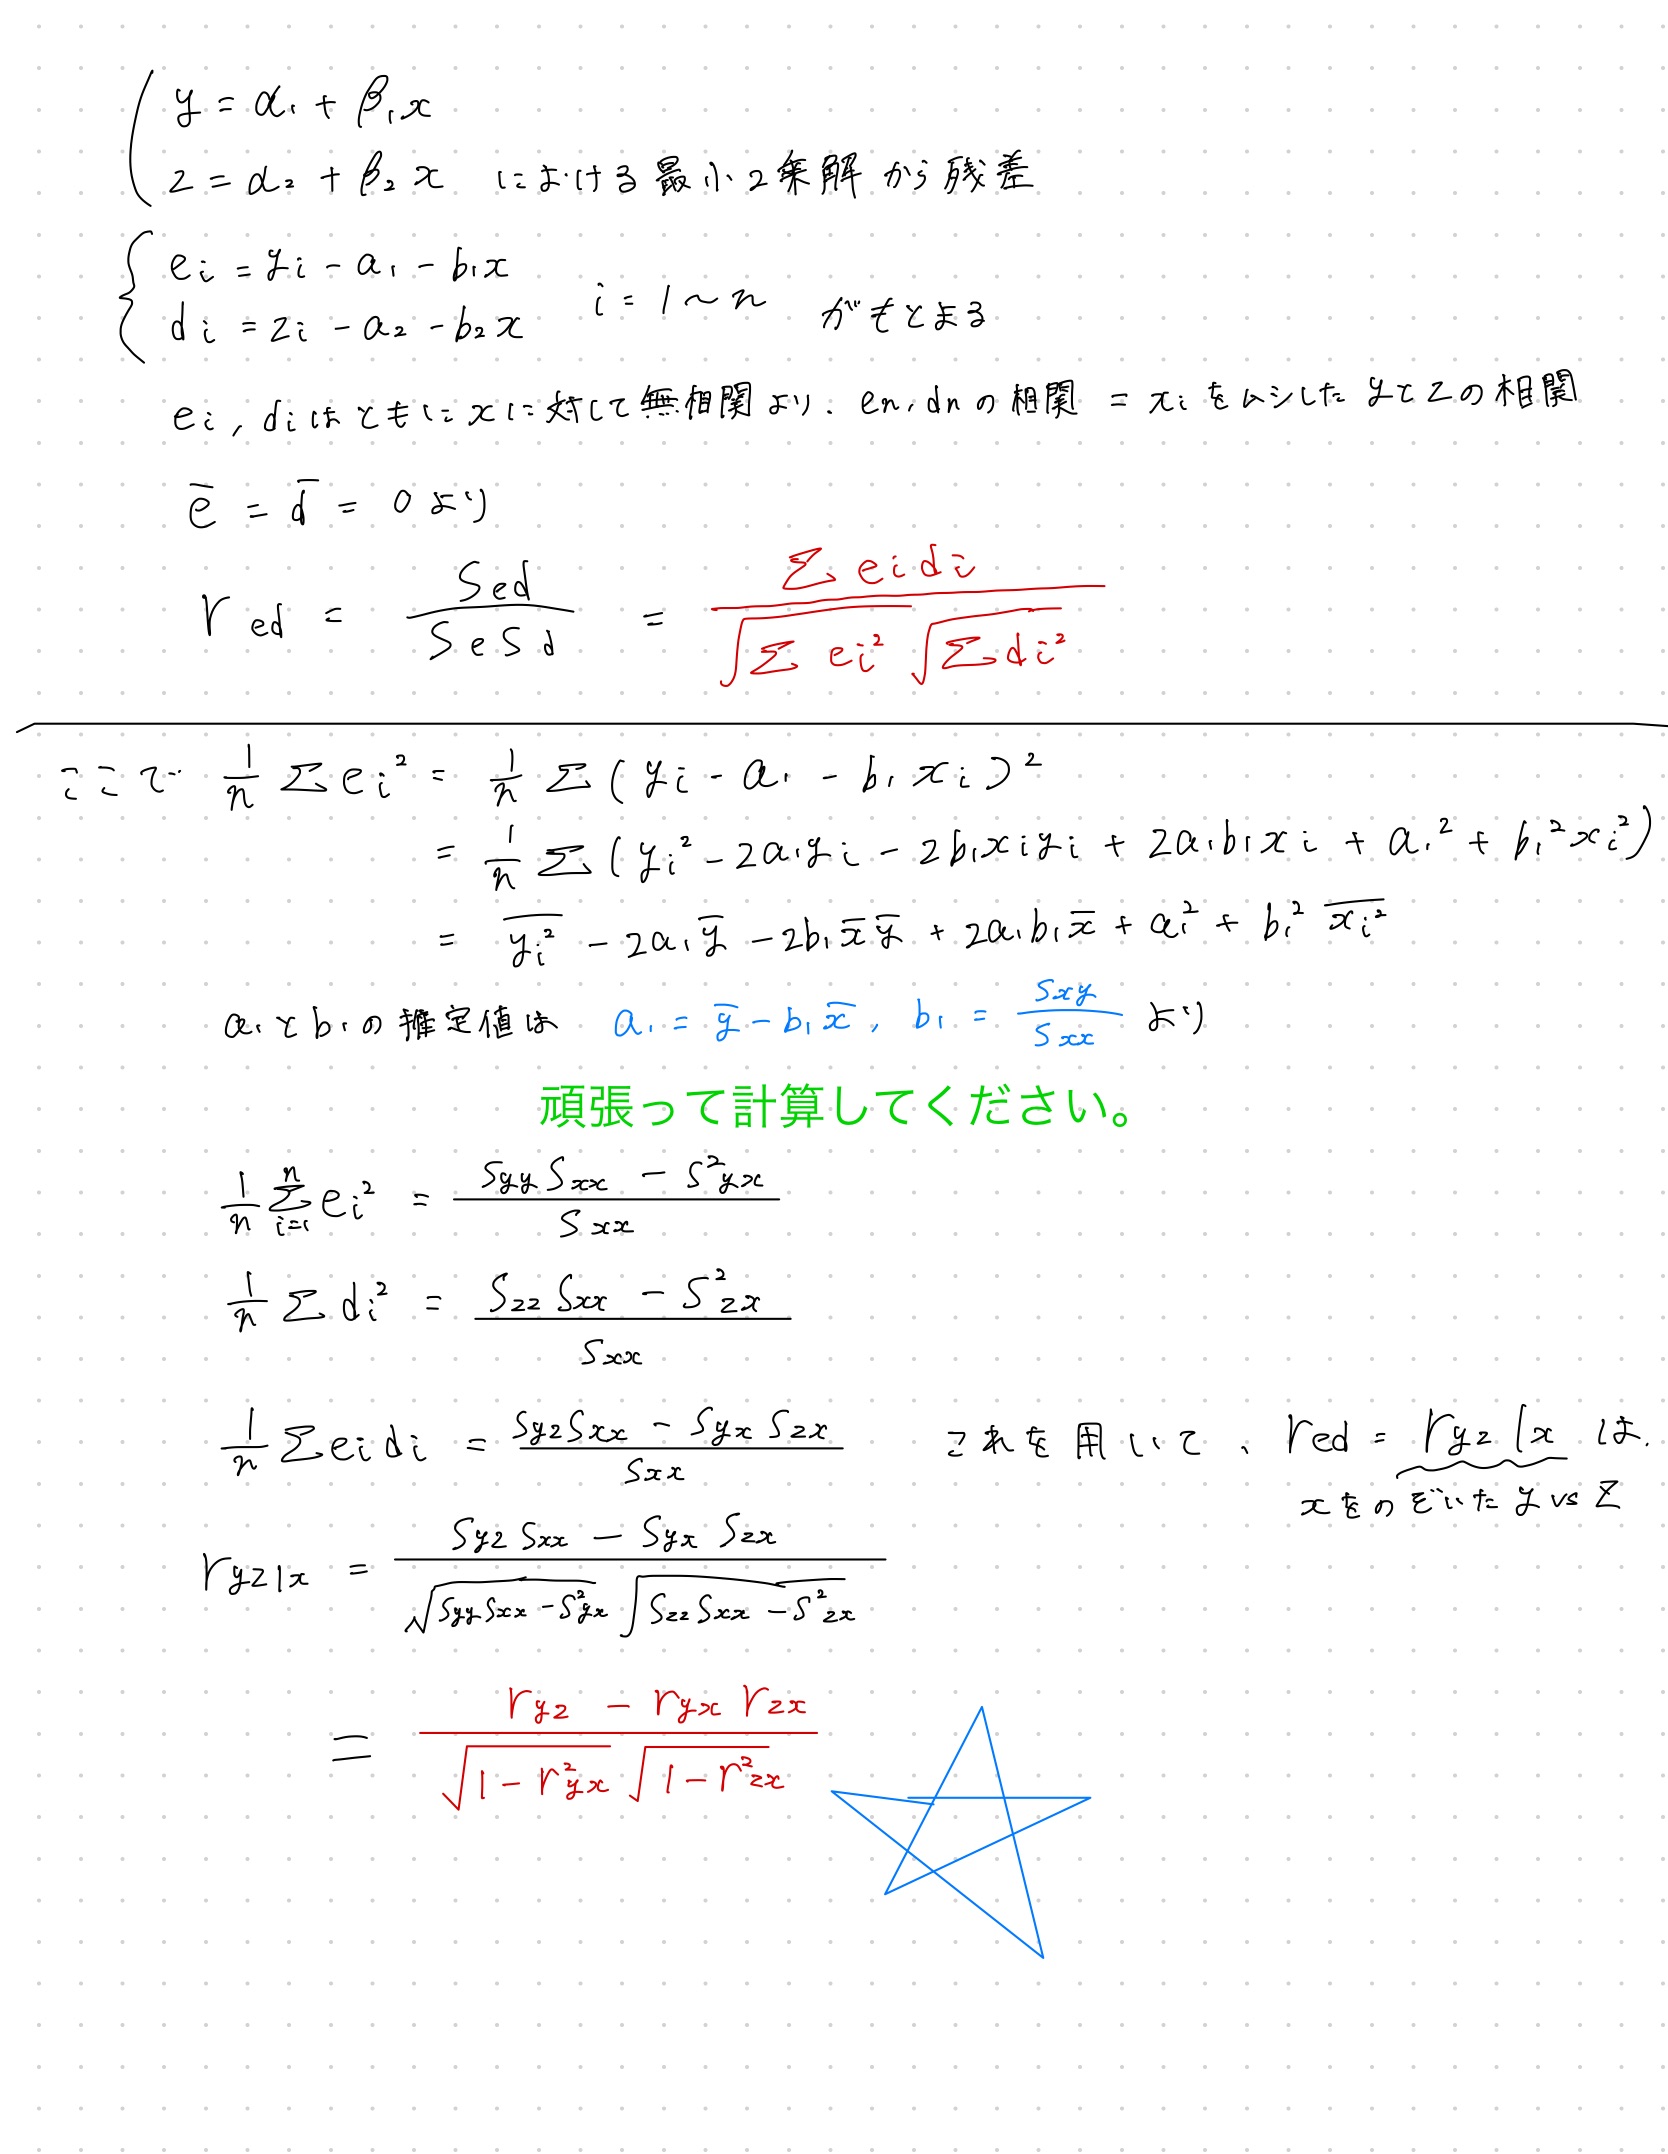 y = α₁ + β₁x
z = α₂ + β₂x における最小2乗解から残差
eᵢ = yᵢ - a₁ - b₁x
dᵢ = zᵢ - a₂ - b₂x i = 1 ~ n がもとまる
eᵢ, dᵢはともにxに対して無相関より、en, dnの相関 = xᵢをムシしたyとzの相関
e̅ = d̅ = 0 より
r_ed = S_ed / (S_e S_d) = Σ eᵢdᵢ / (√(Σ eᵢ²) √(Σ dᵢ²))
ここで 1/n Σ eᵢ² = 1/n Σ (yᵢ - a₁ - b₁xᵢ)²
= 1/n Σ (yᵢ² - 2a₁yᵢ - 2b₁xᵢyᵢ + 2a₁b₁xᵢ + a₁² + b₁²xᵢ²)
= \overline{yᵢ²} - 2a₁y̅ - 2b₁x̅y̅ + 2a₁b₁x̅ + a₁² + b₁² \overline{xᵢ²}
a₁とb₁の推定値は a₁ = y̅ - b₁x̅, b₁ = S_xy / S_xx より
頑張って計算してください。
1/n Σ_{i=1}^{n} eᵢ² = (S_yy S_xx - S²_yx) / S_xx
1/n Σ dᵢ² = (S_zz S_xx - S²_zx) / S_xx
1/n Σ eᵢdᵢ = (S_yz S_xx - S_yx S_zx) / S_xx これを用いて、r_ed = r_yz|x は、
xをのぞいた y vs z
r_yz|x = (S_yz S_xx - S_yx S_zx) / (√(S_yy S_xx - S²_yx) √(S_zz S_xx - S²_zx))
= (r_yz - r_yx r_zx) / (√(1 - r²_yx) √(1 - r²_zx))